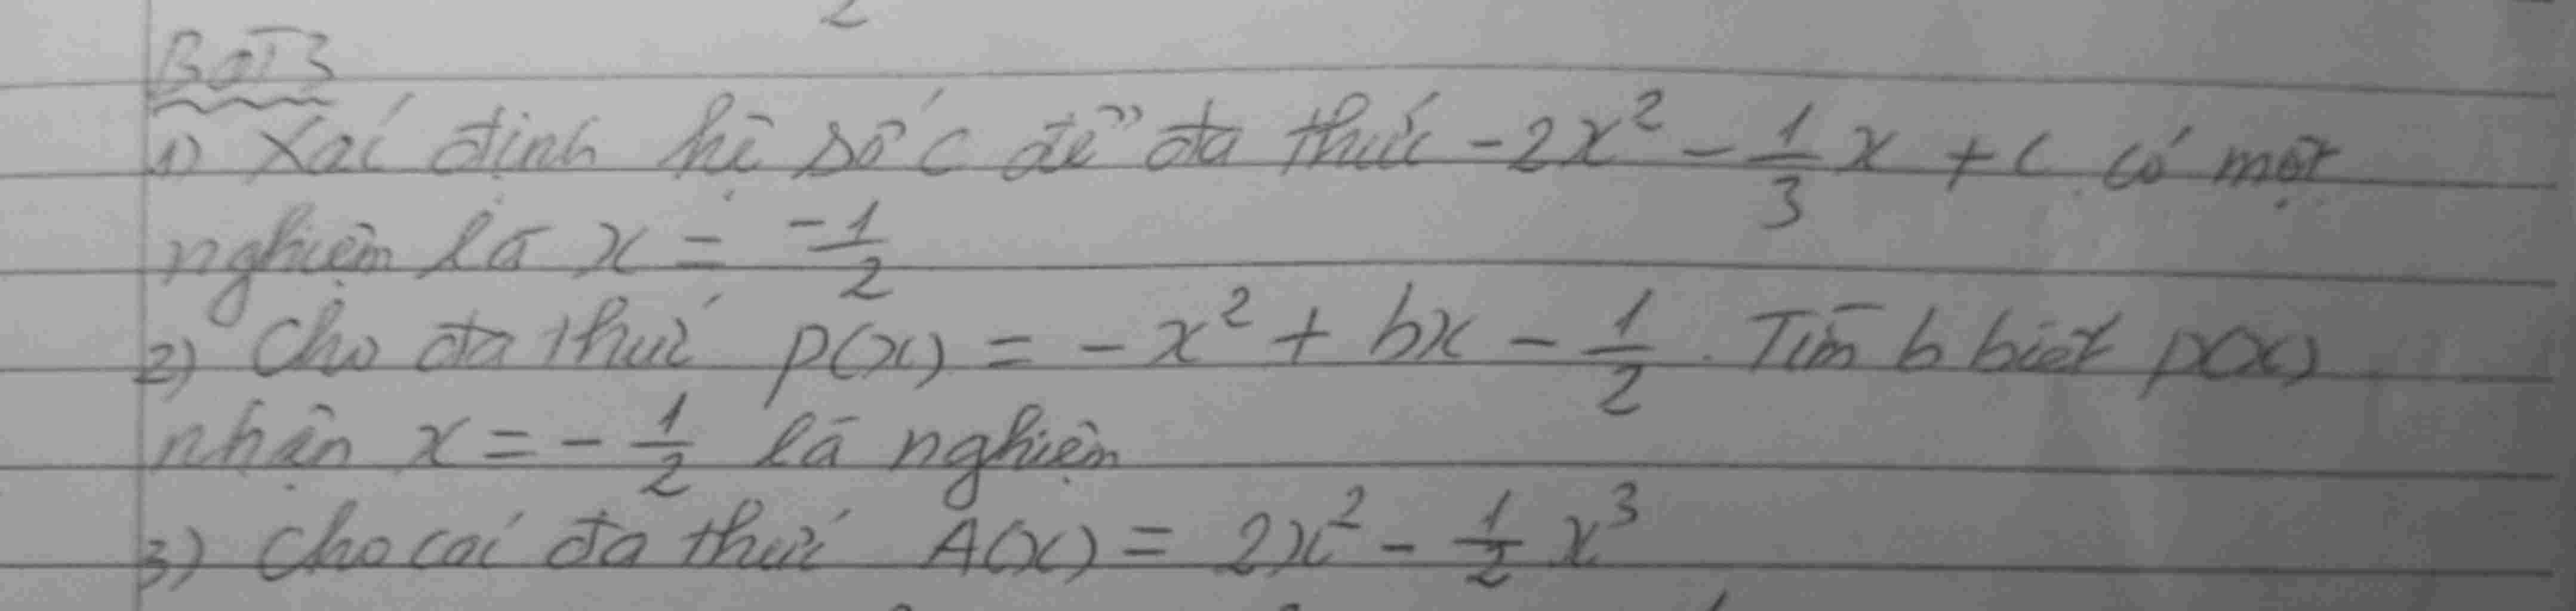 Bài 3
1) Xác định hệ số c để đa thức -2x² - 1/3 x + c có một
nghiệm là x = -1/2
2) Cho đa thức P(x) = -x² + bx - 1/2. Tìm b biết P(x)
nhận x = -1/2 là nghiệm
3) Cho các đa thức A(x) = 2x² - 1/2 x³